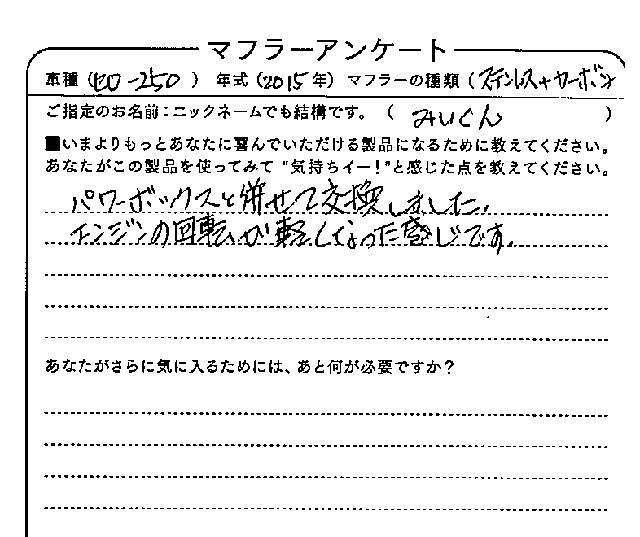 マフラーアンケート
車種（ -250）年式（2015年）マフラーの種類（ステンレス+カーボン
ご指定のお名前:ニックネームでも結構です。（みいくん）
■いまよりもっとあなたに喜んでいただける製品になるために教えてください。
あなたがこの製品を使ってみて"気持ちイー！"と感じた点を教えてください。
パワーボックスと併せて交換しました。
エンジンの回転が軽くなった感じです。
あなたがさらに気に入るためには、あと何が必要ですか？